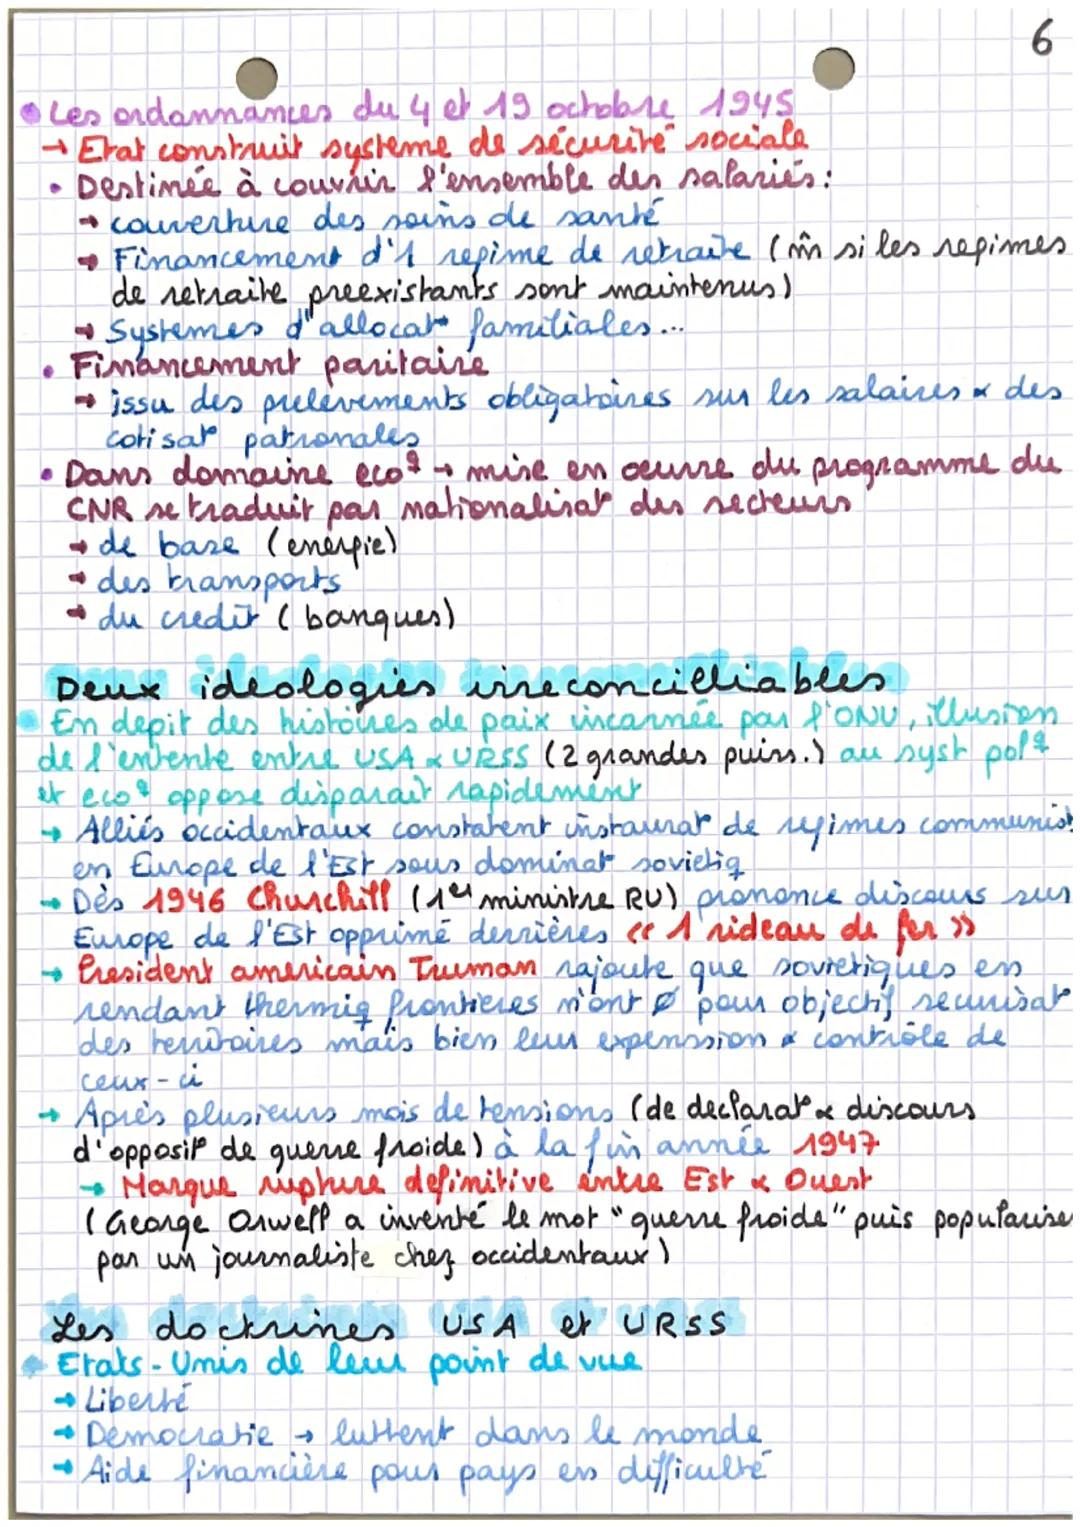 6
Les ordannances du 4 et 19 octobre 1945
→ Etat construit système de sécurité sociale
• Destinée à couvrir l'ensemble des salariés :
→ couverture des soins de santé
→ Financement d'1 regime de retraite (m̂ si les regimes
de retraite preexistants sont maintenus)
→ Systemes d'allocat° familiales...
• Financement paritaire
→ issu des prelevements obligatoires sur les salaires & des
cotisat° patronales
• Dans domaine eco q → mise en oeuvre du programme du
CNR se traduit par nationalisat° des secteurs
→ de base (energie)
→ des transports
→ du credit (banques)
Deux ideologies irreconcilliables
En depit des histoires de paix incarnée par l'ONU, illusion
de l'entente entre USA & URSS (2 grandes puiss.) au syst pol q
et eco q oppose disparait rapidement
→ Alliés occidentaux constatent instaurat° de regimes communist
en Europe de l'Est sous dominat° sovietiq
→ Dès 1946 Churchill (1er ministre RU) prononce discours sur
Europe de l'Est opprimé derrières « 1 rideau de fer »
→ President americain Truman rajoute que sovietiques en
rendant thermiq frontieres n'ont Ø pour objectif securisat°
des territoires mais bien leur expenssion & contrôle de
ceux-ci
→ Après plusieurs mois de tensions (de declarat° & discours
d'opposit° de guerre froide) à la fin année 1947
→ Marque rupture definitive entre Est & Ouest
(George Orwell a inventé le mot "guerre froide" puis popularise
par un journaliste chez occidentaux)
Les doctrines USA et URSS
Etats-Unis de leur point de vue
→ Liberté
→ Democratie → luttent dans le monde
→ Aide financière pour pays en difficulté